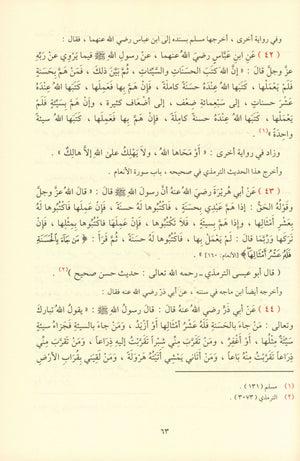 وفي رواية أخرى ، أخرجها مسلم بسنده إلى ابن عباس رضي الله عنهما ، فقال :
( ٤٢ ) عَنِ ابنِ عبَّاسٍ رضيَ اللهُ عنهما ، عنْ رسولِ اللهِ ﷺ فيما يَرْوِي عنْ رَبِّهِ
عزَّ وجلَّ قالَ : « إنَّ اللهَ كَتَبَ الحسناتِ والسَّيِّئاتِ ، ثُمَّ بيَّنَ ذلكَ ، فمَنْ هَمَّ بِحَسَنَةٍ
فَلَمْ يَعْمَلْهَا ، كَتَبَها اللهُ عِنْدَهُ حسنةً كاملةً ، فإنْ هَمَّ بها فَعَمِلَها ، كَتَبَها اللهُ عِنْدَهُ
عَشْرَ حسناتٍ ، إلى سَبْعِمائَةِ ضِعْفٍ ، إلى أضْعافٍ كثيرة ، وإنْ هَمَّ بِسَيِّئَةٍ فَلَمْ
يَعْمَلْها ، كَتَبَها اللهُ عِنْدَهُ حسنةً كامِلَةً ، فإنْ هَمَّ بها فعَمِلَها ، كَتَبَها اللهُ سَيِّئَةً
واحدةً »(١) .
وزاد في رواية أخرى : « أوْ مَحَاها اللهُ ، ولا يَهْلِكُ علىٰ اللهِ إلَّا هالِكٌ » .
وأخرج هذا الحديث الترمذي في صحيحه ، باب سورة الأنعام
( ٤٣ ) عَنْ أبي هُرَيْرَةَ رضيَ اللهُ عنهُ أنَّ رسولَ اللهِ ﷺ قال : « قالَ اللهُ عزَّ وجلَّ
وَقَوْلُهُ الحَقُّ : إذا هَمَّ عَبْدِي بحسنةٍ ، فاكْتُبُوها لَهُ حَسَنَةً ، فإن عَمِلَها فاكْتُبُوها لهُ
بِعَشْرِ أمْثالِها ، وإذا هَمَّ بِسيئةٍ ، فلا تَكْتُبُوها ، فإنْ عَمِلَها فاكْتُبُوها بِمِثْلِها ، فإنْ
تَرَكَها وَرُبَّمَا قالَ : لمْ يَعْمَلْ بِها ، فاكْتُبُوها لَهُ حسنةً ، ثمَّ قَرَأَ : ﴿ مَن جَاءَ بِالْحَسَنَةِ
فَلَهُ عَشْرُ أَمْثَالِهَا ﴾ [الأنعام: ١٦٠] » .
( قال أبو عيسى الترمذي ـ رحمه الله تعالى : حديث حسن صحيح )(٢) .
وأخرجه أيضاً ابن ماجه في سننه ، عن أبي ذرٍّ رضي الله عنه فقال :
( ٤٤ ) عَنْ أبي ذَرٍّ رضيَ اللهُ عنهُ قالَ : قالَ رسولُ اللهِ ﷺ : « يقولُ اللهُ تباركَ
وتعالى : مَنْ جاءَ بالحَسَنَةِ فَلَهُ عَشْرُ أمْثالِها أوْ أزْيَدُ ، ومَنْ جاءَ بالسيئةِ فَجَزاءُ سيئةٍ
سَيِّئَةٌ مِثْلُها ، أوْ أغْفِرُ ، ومَنْ تَقَرَّبَ مِنِّي شِبْراً تَقَرَّبْتُ إليهِ ذِرَاعاً ، ومَنْ تَقَرَّبَ مِنِّي
ذِرَاعاً تَقَرَّبْتُ مِنْهُ بَاعاً ، ومَنْ أتَانِي يَمْشِي أتَيْتُهُ هَرْوَلَةً ، وَمَنْ لَقِيَنِي بِقُرَابِ الأرْضِ
(١) مسلم (١٣١) .
(٢) الترمذي (٣٠٧٣) .
٦٣